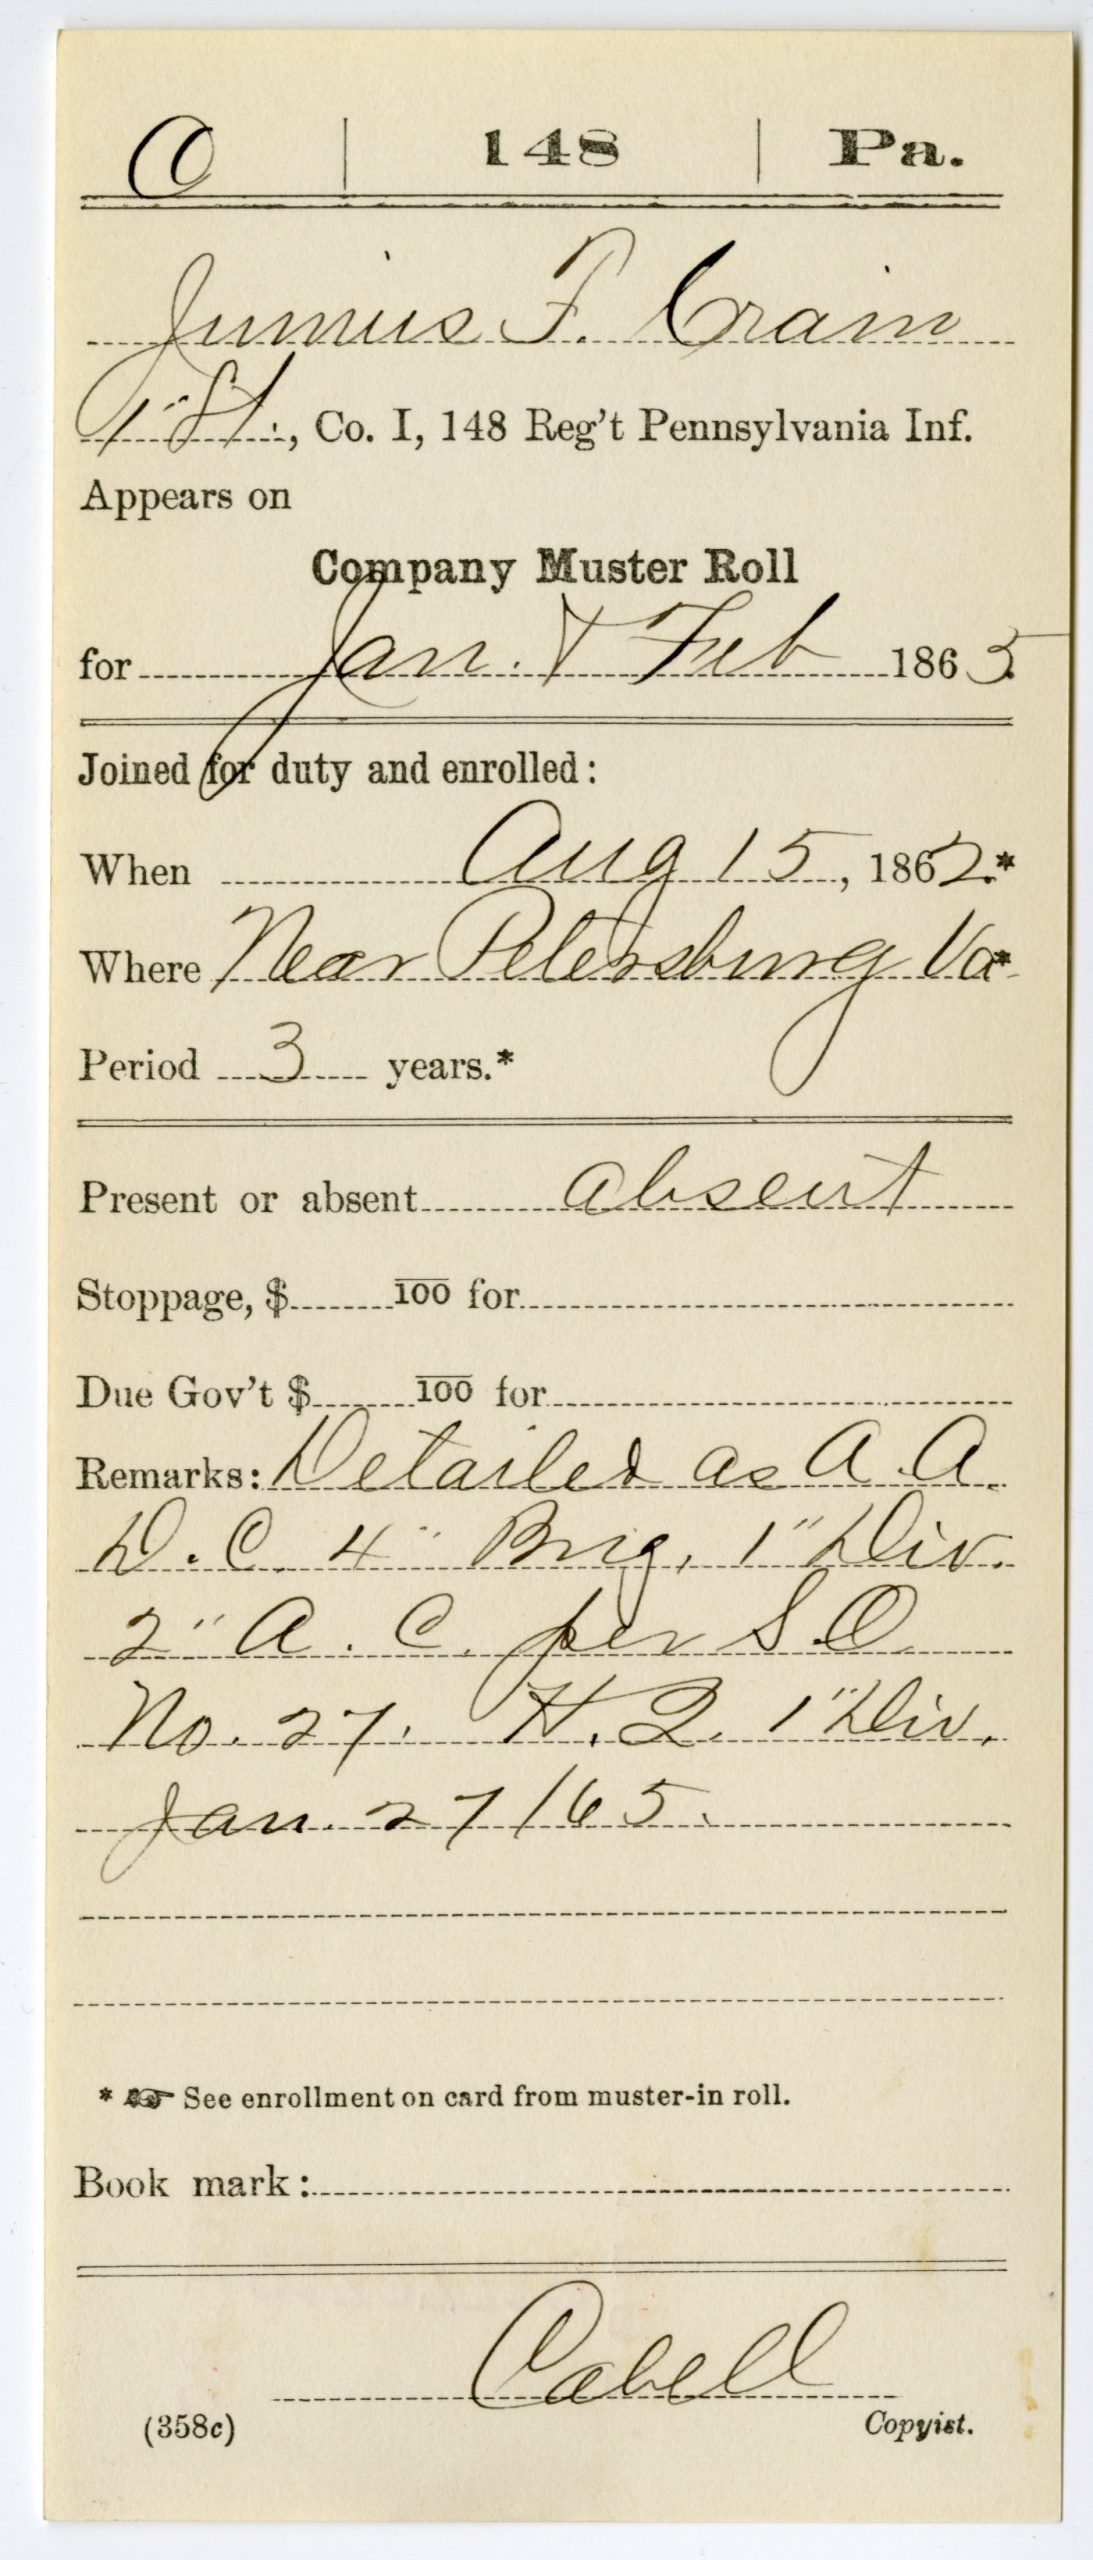 C | 148 | Pa.
Junius F. Crain
1" Lt., Co. I, 148 Reg't Pennsylvania Inf.
Appears on
Company Muster Roll
for Jan. & Feb 1865.
Joined for duty and enrolled:
When Aug 15, 1862.*
Where Near Petersburg Va*
Period 3 years.*
Present or absent absent
Stoppage, $ 100 for
Due Gov't $ 100 for
Remarks: Detailed as A. A.
D. C. 4" Brig. 1" Div.
2" A. C. per S.O
No. 27. H. Q. 1" Div.
Jan. 27/65.
* ☞ See enrollment on card from muster-in roll.
Book mark:
Cabell
(358c) Copyist.